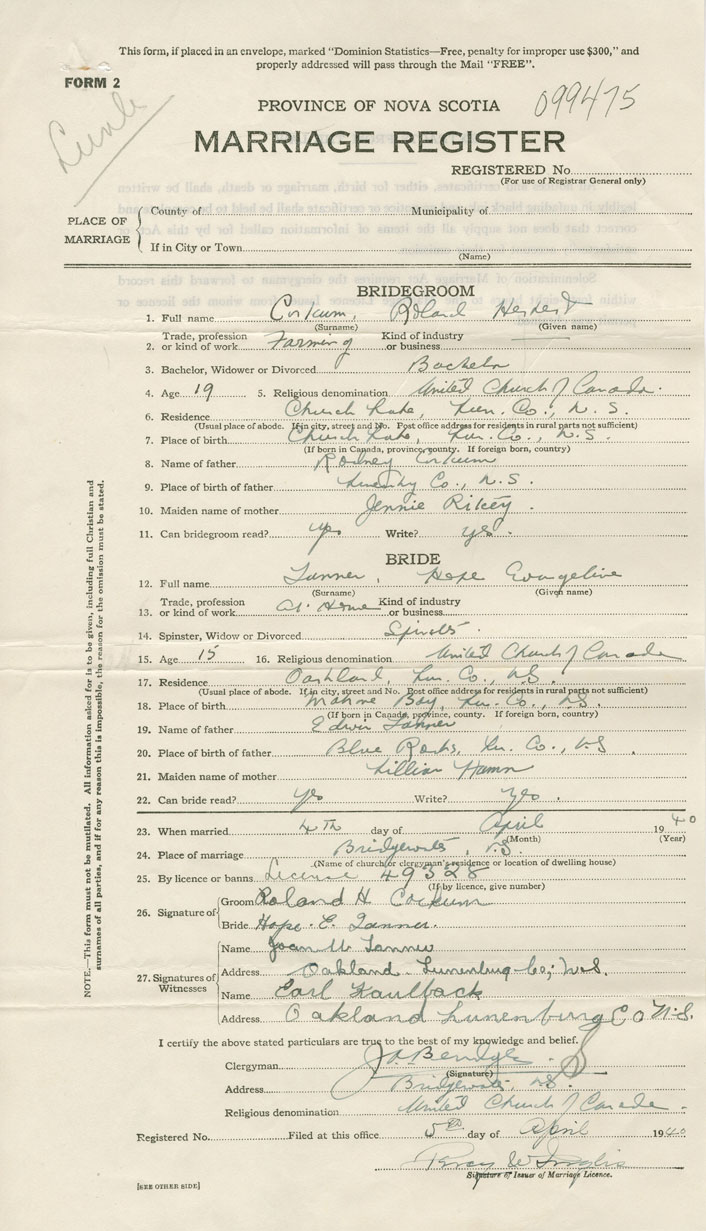 This form, if placed in an envelope, marked "Dominion Statistics—Free, penalty for improper use $300," and
properly addressed will pass through the Mail "FREE".
FORM 2
PROVINCE OF NOVA SCOTIA
099475
MARRIAGE REGISTER
REGISTERED No.
(For use of Registrar General only)
PLACE OF MARRIAGE
County of
Municipality of
If in City or Town
(Name)
BRIDEGROOM
1. Full name Corkum, Roland Herbert
(Surname) (Given name)
2. Trade, profession or kind of work Farming Kind of industry or business
3. Bachelor, Widower or Divorced Bachelor
4. Age 19 5. Religious denomination United Church of Canada.
6. Residence Church Lake, Lun. Co., N.S.
(Usual place of abode. If in city, street and No. Post office address for residents in rural parts not sufficient)
7. Place of birth Church Lake, Lun. Co., N.S.
(If born in Canada, province, county. If foreign born, country)
8. Name of father Rodney Corkum
9. Place of birth of father Co., N.S.
10. Maiden name of mother Jennie
11. Can bridegroom read? yes Write? yes.
BRIDE
12. Full name Tanner, Hope Evangeline
(Surname) (Given name)
13. Trade, profession or kind of work At Home Kind of industry or business
14. Spinster, Widow or Divorced Spinster.
15. Age 15 16. Religious denomination United Church of Canada
17. Residence Oakland, Lun. Co., N.S.
(Usual place of abode. If in city, street and No. Post office address for residents in rural parts not sufficient)
18. Place of birth Mahone Bay, Lun. Co., N.S.
(If born in Canada, province, county. If foreign born, country)
19. Name of father Edwin Tanner
20. Place of birth of father Blue Rocks, Lun. Co., N.S.
21. Maiden name of mother Lillian Hamm
22. Can bride read? yes Write? yes.
23. When married 4th day of April 1940
(Month) (Year)
24. Place of marriage Bridgewater, N.S.
(Name of church or clergyman's residence or location of dwelling house)
25. By licence or banns License 49528
(If by licence, give number)
26. Signature of
Groom Roland H Corkum
Bride Hope. E. Tanner.
27. Signatures of Witnesses
Name Joan M Tanner
Address Oakland Lunenburg Co; N.S.
Name Earl Kaulback
Address Oakland Lunenburg Co N.S.
I certify the above stated particulars are true to the best of my knowledge and belief.
Clergyman
(Signature)
Address Bridgewater N.S.
Religious denomination United Church of Canada.
Registered No. Filed at this office 5th day of April 1940
Signature of Issuer of Marriage Licence.
[SEE OTHER SIDE]
NOTE.—This form must not be mutilated. All information asked for is to be given, including full Christian and
surnames of all parties, and if for any reason this is impossible, the reason for the omission must be stated.